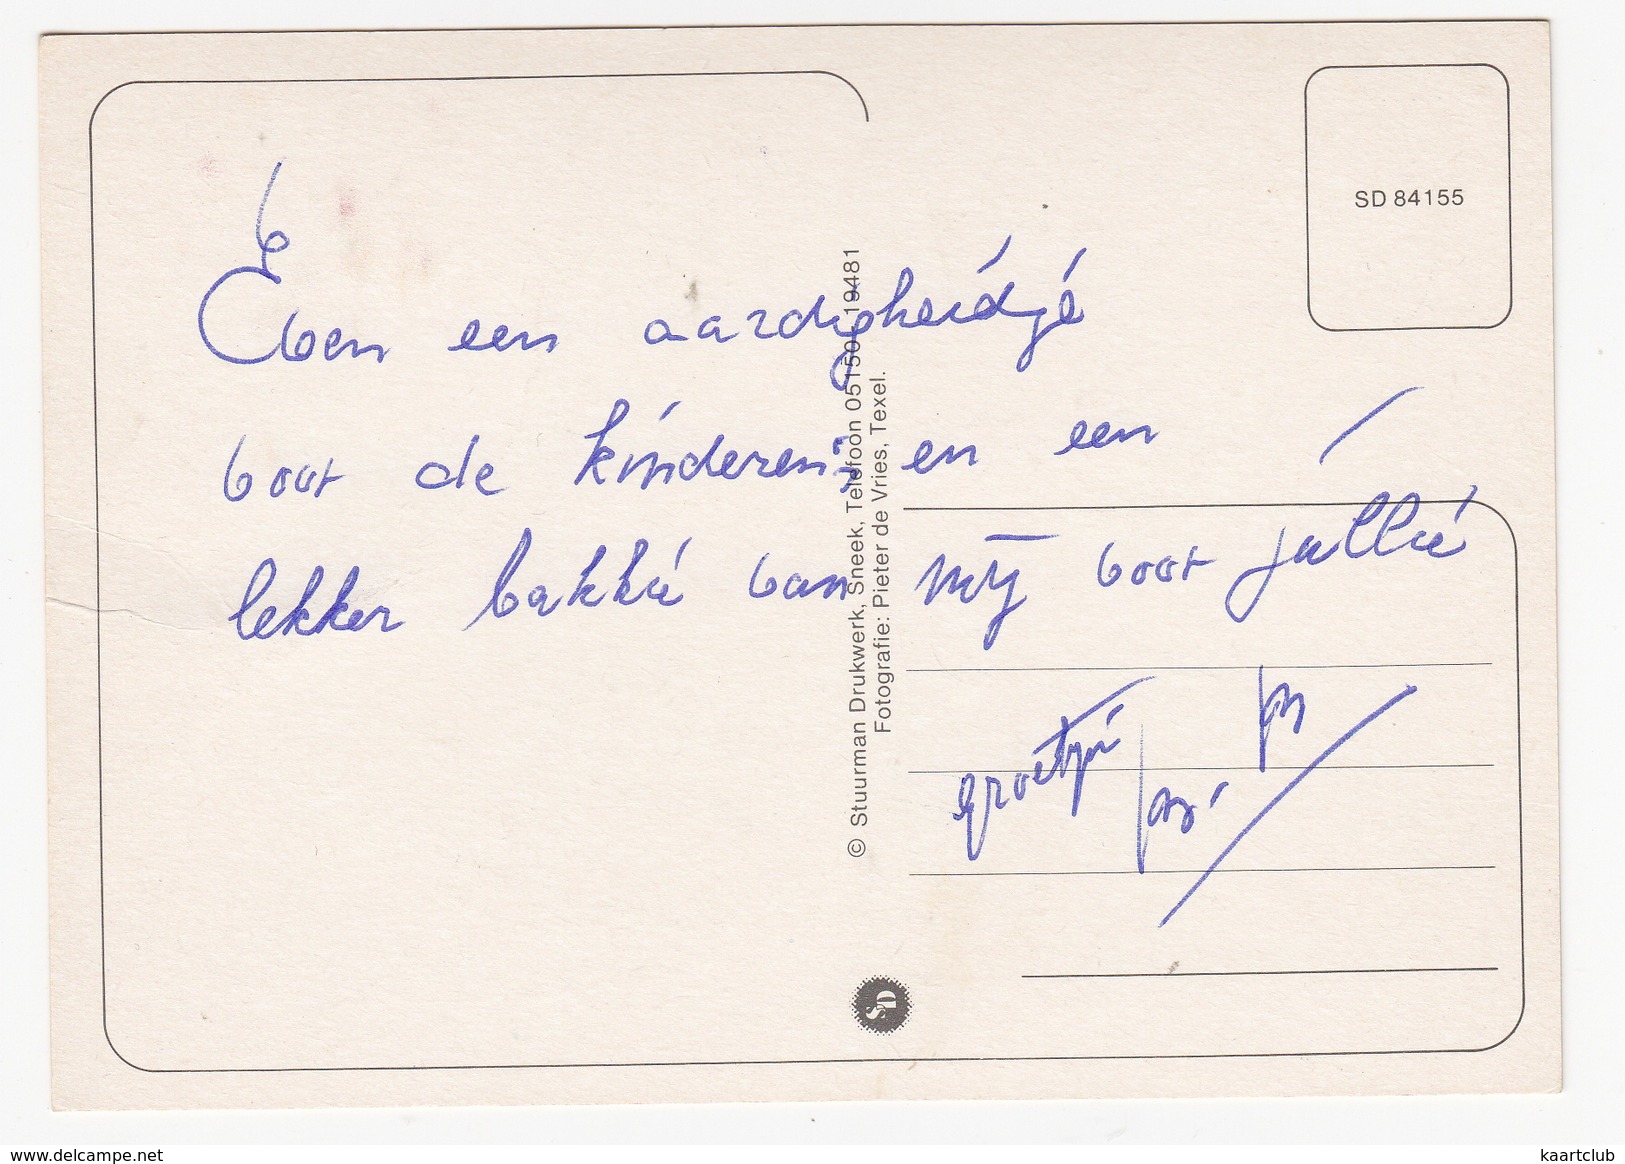 SD 84155
Even een aardigheidje
voor de kinderen, en een
lekker bakkie van mij voor jullie
groetjes
© Stuurman Drukwerk, Sneek, Telefoon 05150 - 19481
Fotografie: Pieter de Vries, Texel.
SD
www.delcampe.net
kaartclub